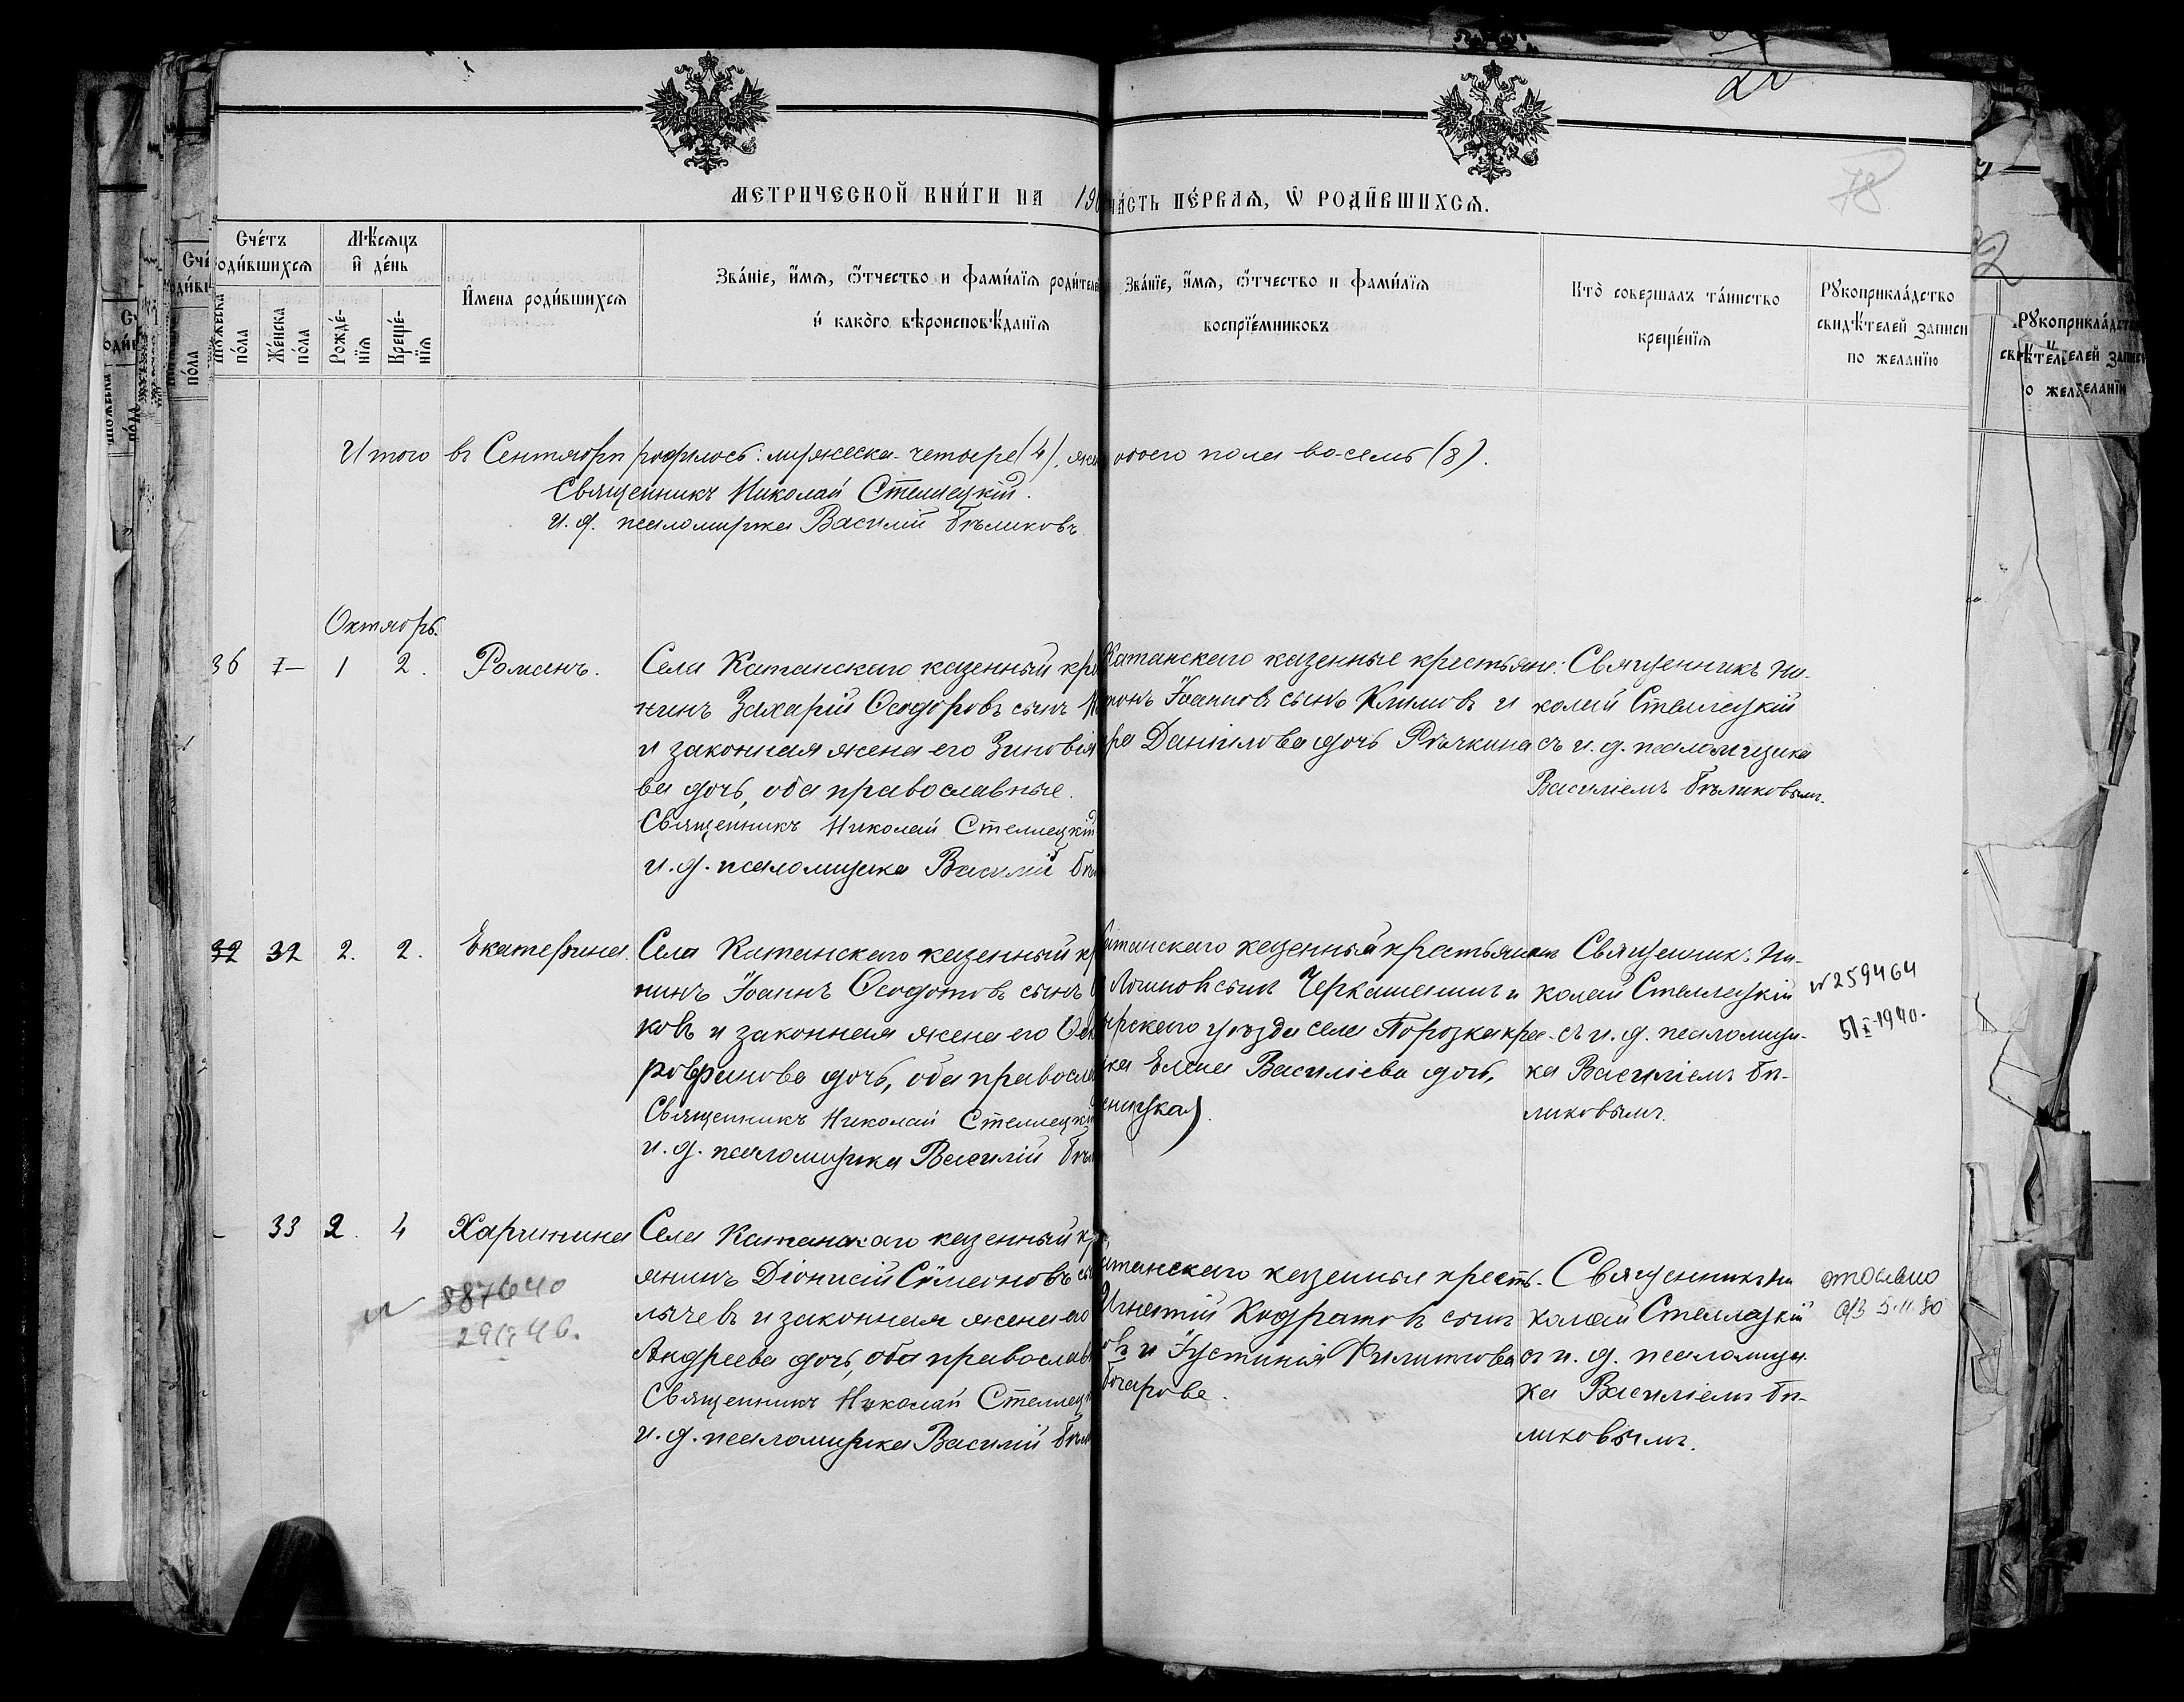 22
78
МЕТРИЧЕСКОЙ КНИ́ГИ НА 190
ЧА́СТЬ ПЕ́РВАѦ, Ѡ҆ РОДИ́ВШИХСѦ.
Сче́тъ роди́вшихсѧ
Мѣ́сѧцъ и҆ де́нь
И҆мена роди́вшихсѧ
Зва́нїе, и҆́мѧ, ѻ҆́тчество и фами́лїѧ родителе
и҆ како́го вѣроисповѣ́данїѧ
Зва́нїе, и҆́мѧ, ѻ҆́тчество и фами́лїѧ
воспрїе́мниковъ
Кто̀ совершалъ та́инство
креще́нїѧ
Рꙋкоприкла́дство
свидѣ́телей записи
по желанїю
Мꙋжеска по́ла
Же́нска по́ла
Рожде́нїѧ
Креще́нїѧ
Итого въ Сентябрѣ родилось: мужеска - четыре (4), жен
обоего пола восемь (8).
Священникъ Николай Стеллецкій.
И. д. псаломщика Василій Бѣликовъ
Октябрь.
36 – 1 2. Романъ.
Села Катанскаго казенный кре
нинъ Захарій Ѳеодоровъ сынъ
и законная жена его Зиновія
ва дочь, оба православные.
Священникъ Николай Стеллецкій
и. д. псаломщика Василій Бѣ
Катанскаго казенные крестьяне:
Іоанновъ сынъ Климовъ и
Данилова дочь Рѣчкина
Священникъ Ни-
колай Стеллецкій
съ и. д. псаломщика
Василіемъ Бѣликовымъ.
32 32 2. 2. Екатерина.
Села Катанскаго казенный кр
нинъ Іоаннъ Ѳеодотовъ сынъ
ковъ и законная жена его
дочь, оба правосла
Священникъ Николай Стеллецкій
и. д. псаломщика Василій Бѣл
атанскаго казенный крестьянинъ
Логиновъ сынъ Черкашенинъ и
уѣзда села Порозка кре-
ка Елена Василіева дочь,
Священникъ Ни-
колай Стеллецкій
съ и. д. псаломщи-
ка Василіемъ Бѣ-
ликовымъ.
№259464
5/X-1940.
- 33 2. 4 Харитина
887640
Села Катанскаго казенный кр
янинъ Діонисій Сѵмеоновъ сы
лычевъ и законная жена его
Андреева дочь, оба православ
Священникъ Николай Стеллец
и. д. псаломщика Василій Бѣл
атанскаго казенные кресть-
Игнатій Кодратовъ сынъ
овъ и Іустинія Филиппова
Бочарова.
Священникъ Ни
колай Стеллецкій
съ и. д. псаломщи-
ка Василіемъ Бѣ-
ликовымъ.
5.11.80